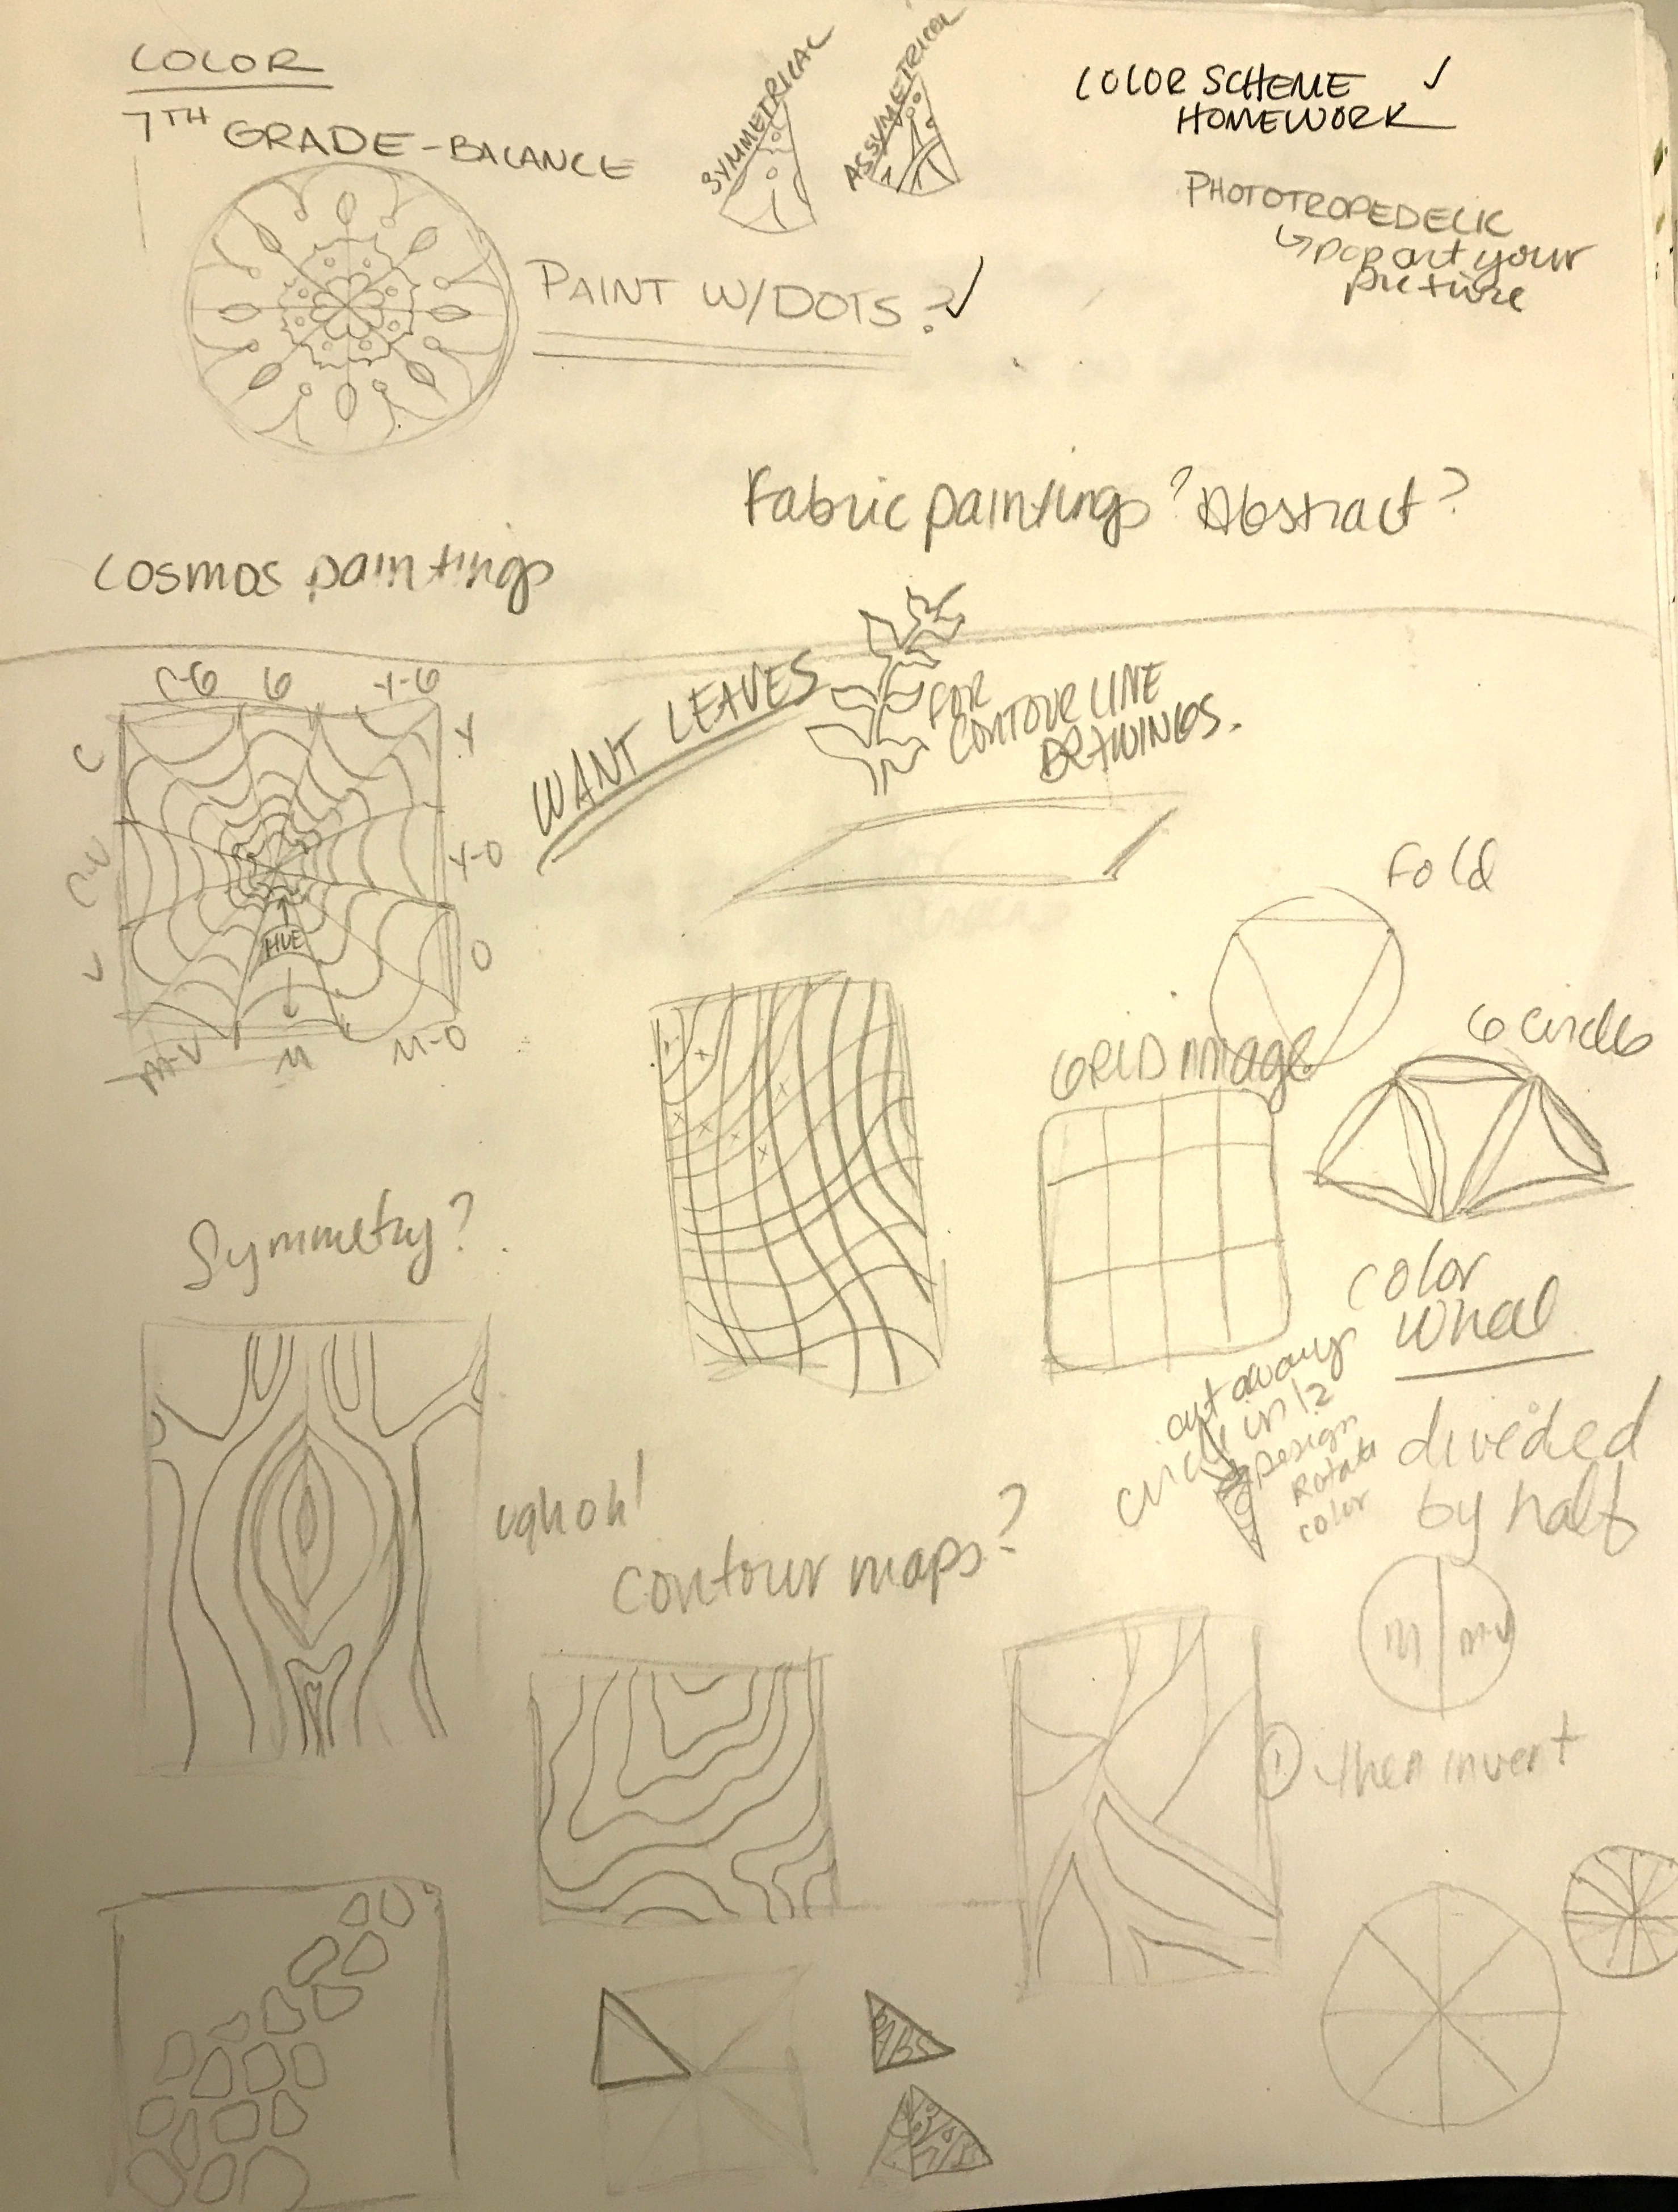 COLOR
7TH GRADE-BALANCE
SYMMETRICAL
ASSYMETRICAL
COLOR SCHEME ✓
HOMEWORK
PHOTOTROPEDELIC
↳pop art your
picture
PAINT W/DOTS?✓
Fabric paintings? Abstract?
Cosmos paintings
C-G G Y-G
C
Y
C-V
Y-O
HUE
V
O
M-V M M-O
WANT LEAVES
FOR
CONTOUR LINE
DRAWINGS.
Fold
6 circles
GRID image
Symmetry?
Color
Wheel
divided
by half
cut away
circle in 12
Design
Rotate
color
ugh oh!
Contour maps?
M M-V
① then invent